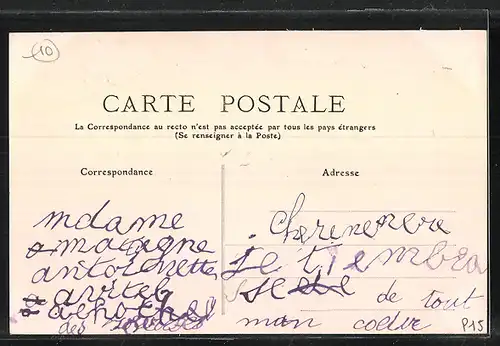 10
CARTE POSTALE
La Correspondance au recto n'est pas acceptée par tous les pays étrangers
(Se renseigner à la Poste)
Correspondance
Adresse
mdame
antoinette
des
Cheremere
Je t'embra
sse de tout
mon coeur
P15